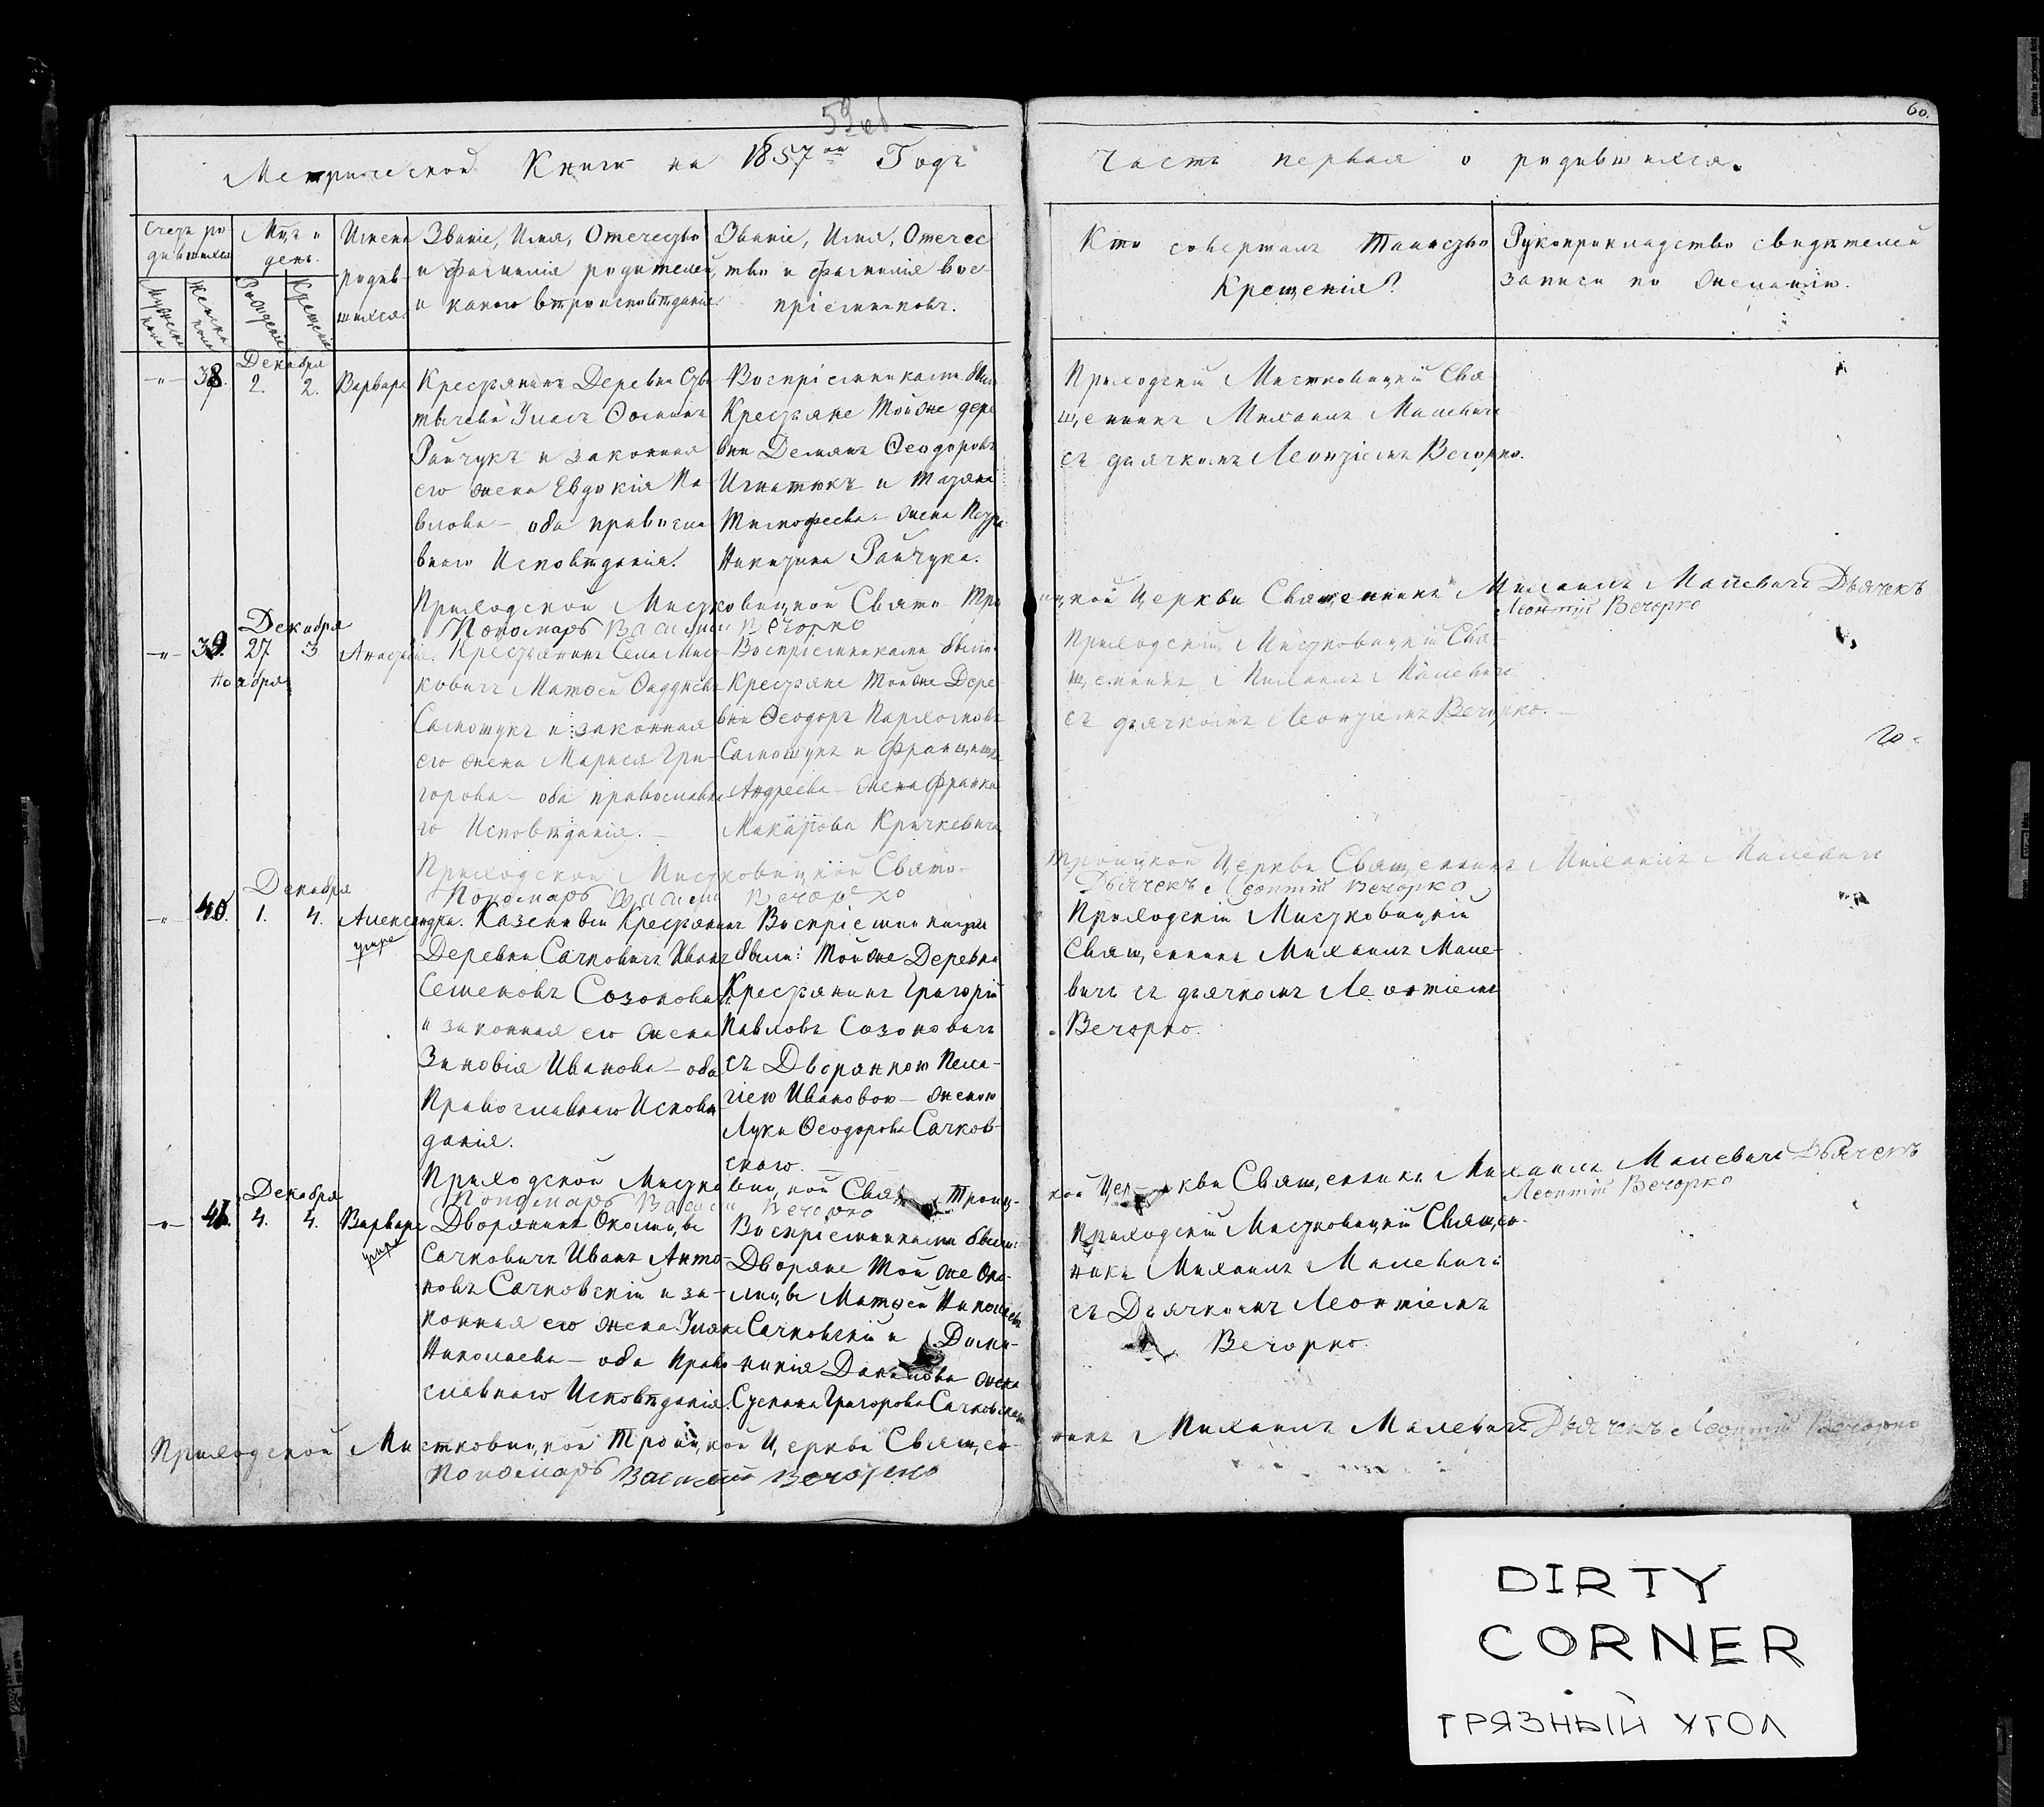 59 об
60.
Метрической Книги на 1857ой Годъ
Часть первая о родившихся.
Счетъ ро-
дившихся
Мужеска
пола
Женска
пола
Мцъ и
день.
Рожденія
Крещенія
Имена
родив-
шихся.
Званіе, Имя, Отчество
и фамилія родителей,
и какого вѣроисповѣданія
Званіе, Имя, Отчес
тво и фамилія вос-
пріемниковъ.
Кто совершалъ Таинство
Крещенія?
Рукоприкладство свидѣтелей
записи по желанію.
Декабря
-"- 38. 2. 2. Варвара
Крестьянинъ Деревни
Райчукъ и законная
его жена Евдокія Па-
влова - оба правосла
внаго Исповѣданія.
Воспріемниками были
Крестьяне той же дере
вни Демянъ Ѳеодоровъ
Игнатюкъ и Татяна
Тимофеева - жена Петра
Никитина Райчука.
Приходскій Мистковицкій Свя
щенникъ Михаилъ Малевичъ
съ дьячкомъ Леонтіемъ Вечорко.
Приходской Мистковицкой Свято Тро
ицкой Церкви Священникъ Михаилъ Малевичъ Дьячекъ
Леонтій Вечорко
Пономарь Василій Вечорко
Декабря
-"- 39. 27. 3
Ноября
Крестьянинъ Села Мист-
ковичъ Матѳей
Самошукъ и законная
его жена Марися Гри-
горова - оба православна
го Исповѣданія. -
Воспріемниками были
Крестьяне той же Дере
вни Ѳеодоръ Пархомовъ
Самошукъ и
Андреева - жена Франка
Макарова Кричкевича
Приходскій Мистковицкій Свя-
щенникъ Михаилъ Малевичъ
съ дьячкомъ Леонтіемъ Вечорко. -
Приходской Мистковицкой Свято-
Троицкой Церкви Священникъ Михаилъ Малевичъ
Пономарь Василій Вечорко
Дьячекъ Леонтій Вечорко
Декабря
-"- 40. 1. 4. Александра.
умре
Казенный Крестьянинъ
Деревни Сачковичъ Иванъ
Семеновъ Созоновичъ
и законная его жена
Зиновія Иванова - оба
Православнаго Исповѣ
данія.
Воспріемниками
были: Той же Деревни
Крестьянинъ Григорій
Павловъ Созоновичъ
съ Дворянкою Пела-
гіею Ивановою - женою
Луки Ѳеодорова Сачков-
скаго. -
Приходскій Мистковицкій
Священникъ Михаилъ Мале-
вичъ съ дьячкомъ Леонтіемъ
Вечорко.
Приходской Мистковицкой Свято Троиц-
кой Церкви Священникъ Михаилъ Малевичъ Дьячекъ
Леонтій Вечорко
Пономарь Василій Вечорко
Декабря
-"- 41. 4. 4. Варвара
умре
Дворянинъ Околицы
Сачковичъ Иванъ Анто-
новъ Сачковскій и за-
конная его жена Уляна
Николаева - оба Право
славнаго Исповѣданія.
Воспріемниками были:
Дворяне Той же Око-
лицы Матѳей Николаевъ
Сачковскій и Доми-
никія Данилова жена
Стефана Григорова Сачковскаго
Приходскій Мистковицкій Священ-
никъ Михаилъ Малевичъ
съ Дьячкомъ Леонтіемъ
Вечорко.
Приходской Мистковицкой Троицкой Церкви Священ-
никъ Михаилъ Малевичъ Дьячекъ Леонтій Вечорко
Пономарь Василій Вечорко
DIRTY
CORNER
ГРЯЗНЫЙ УГОЛ